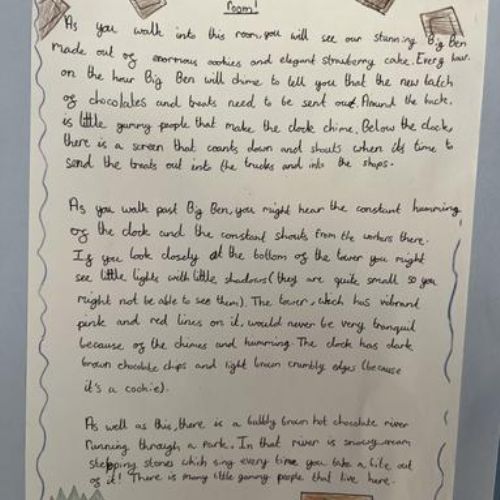 room!
As you walk into this room, you will see our stunning Big Ben
made out of enormous cookies and elegant strawberry cake. Every hour
on the hour Big Ben will chime to tell you that the new batch
of chocolates and treats need to be sent out. Around the back,
is little gummy people that make the clock chime. Below the clock,
there is a screen that counts down and shouts when its time to
send the treats out into the trucks and into the shops.
As you walk past Big Ben, you might hear the constant humming
of the clock and the constant shouts from the workers there.
If you look closely at the bottom of the tower you might
see little lights with little shadows (they are quite small so you
might not be able to see them). The tower, which has vibrant
pink and red lines on it, would never be very tranquil
because of the chimes and humming. The clock has dark
brown chocolate chips and light brown crumbly edges (because
it's a cookie).
As well as this, there is a bubbly brown hot chocolate river
running through a park. In that river is snowy cream
stepping stones which sing every time you take a bite out
of it! There is many little gummy people that live here.